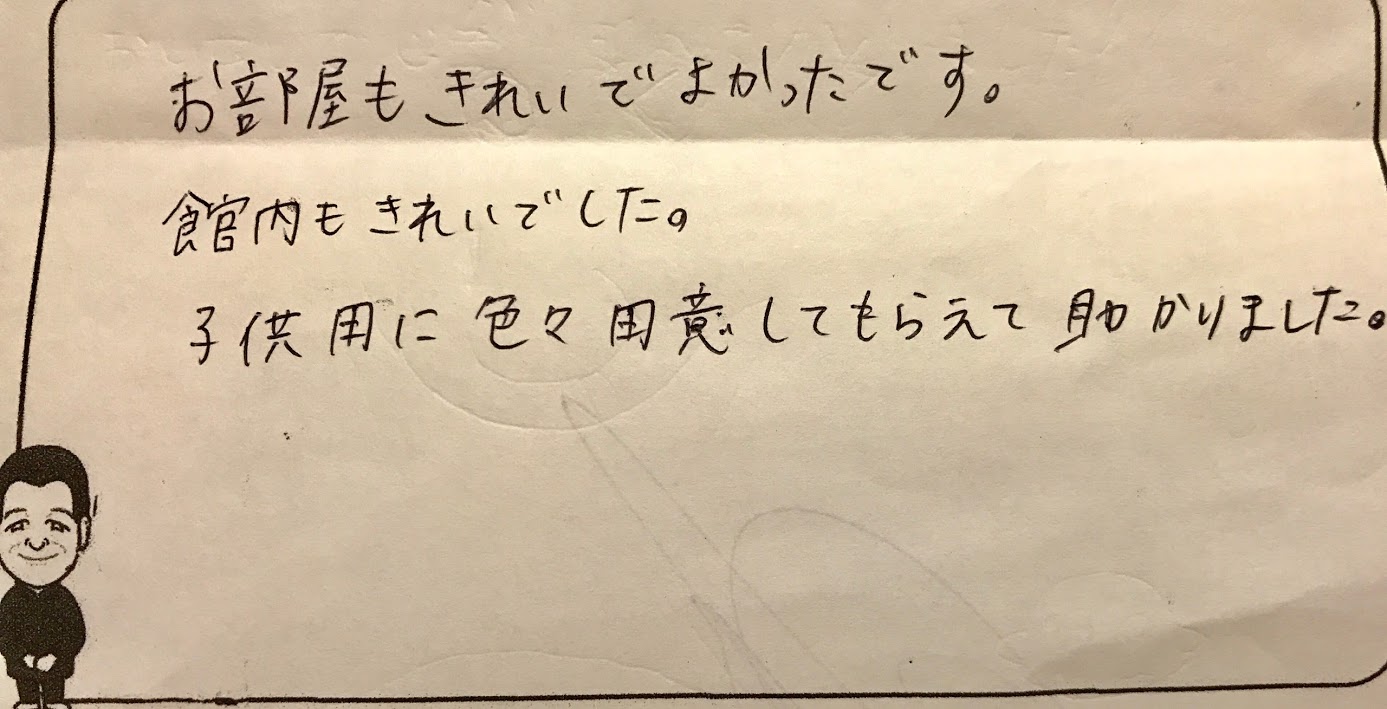 お部屋もきれいでよかったです。
館内もきれいでした。
子供用に色々用意してもらえて助かりました。